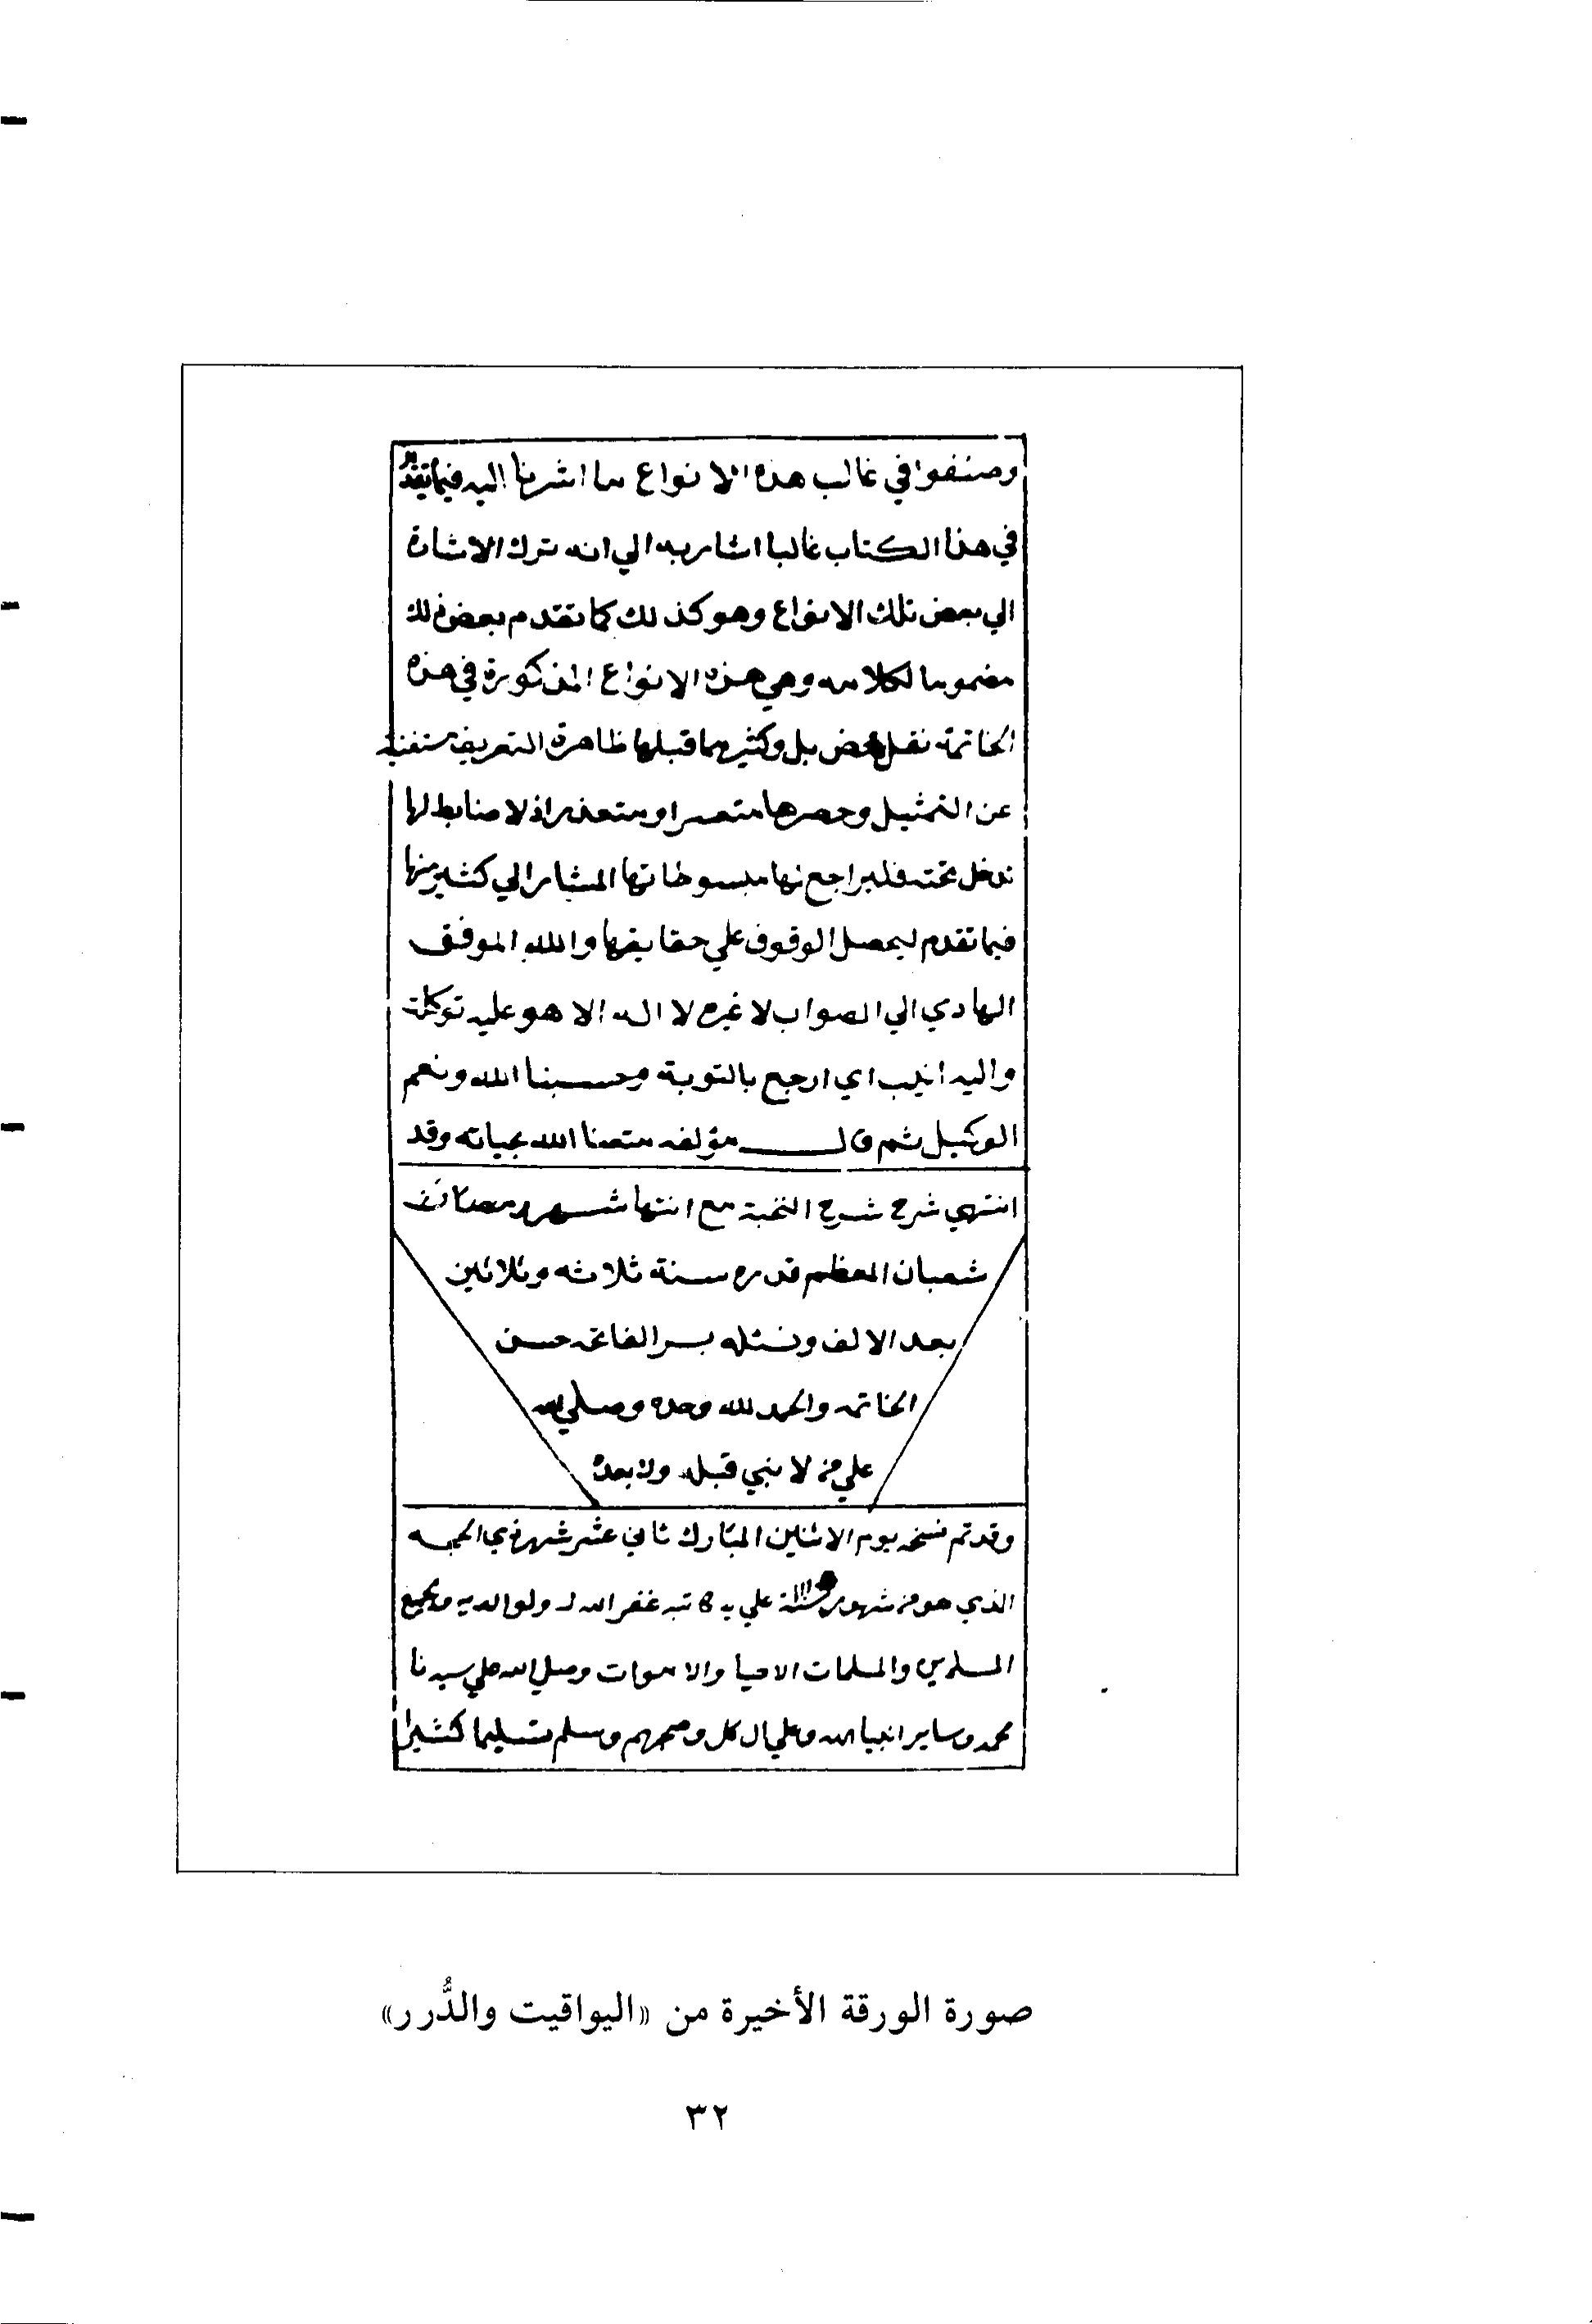 وصنفوا في غالب هذه الانواع ما اشرنا اليه فيما تقدم
في هذا الكتاب غالبا اشار به الي انه ترك الاشارة
الي بعض تلك الانواع وهو كذلك كما تقدم بعض ذلك
مضموما لكلامه وهي هذه الانواع المذكورة في هذه
الخاتمة نقل محض بل وكثير مما قبلها ظاهرة التعريف مستغنية
عن التمثيل وحصرها متعسر او متعذر اذ لا ضابط لها
تدخل تحته فليراجع لها مبسوطاتها المشار الي كثير منها
فيما تقدم ليحصل الوقوف علي حقايقها والله الموفق
الهادي الي الصواب لا غيره لا اله الا هو عليه توكلت
واليه انيب اي ارجع بالتوبة وحسبنا الله ونعم
الوكيل ثم قال مؤلفه متعنا الله بحياته وقد
انتهي شرح شرح النخبة مع انتها شهر
شعبان المعظم قدره سنة ثلاثه وثلاثين
بعد الالف ونسئله بسر الفاتحه حسن
الخاتمه والحمد لله وحده وصلي الله
علي من لا نبي قبله ولا بعده
وقد تم نسخه يوم الاثنين المبارك ثاني عشر شهر ذي الحجه
الذي هو من شهور سنة علي يد كاتبه غفر الله له ولوالديه ولجميع
المسلمين والمسلمات الاحيا والاموات وصلي الله علي سيدنا
محمد وساير انبيا الله وعلي ال كل وصحبهم وسلم تسليما كثيرا
صورة الورقة الأخيرة من «اليواقيت والدُّرر»
٣٢